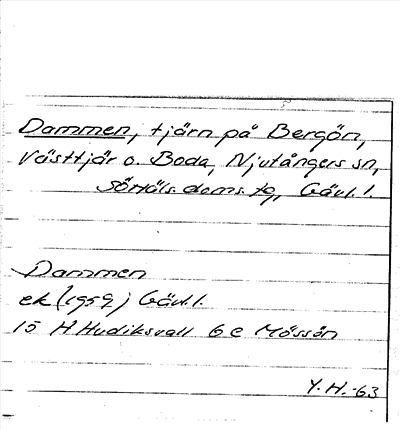 Dammen, tjärn på Bergön,
Västtjär o. Boda, Njutångers sn,
doms. tg, Gävl. l.
Dammen
ek (1959) Gävl. l.
15 H Hudiksvall 6 c Mössön
Y. H. -63